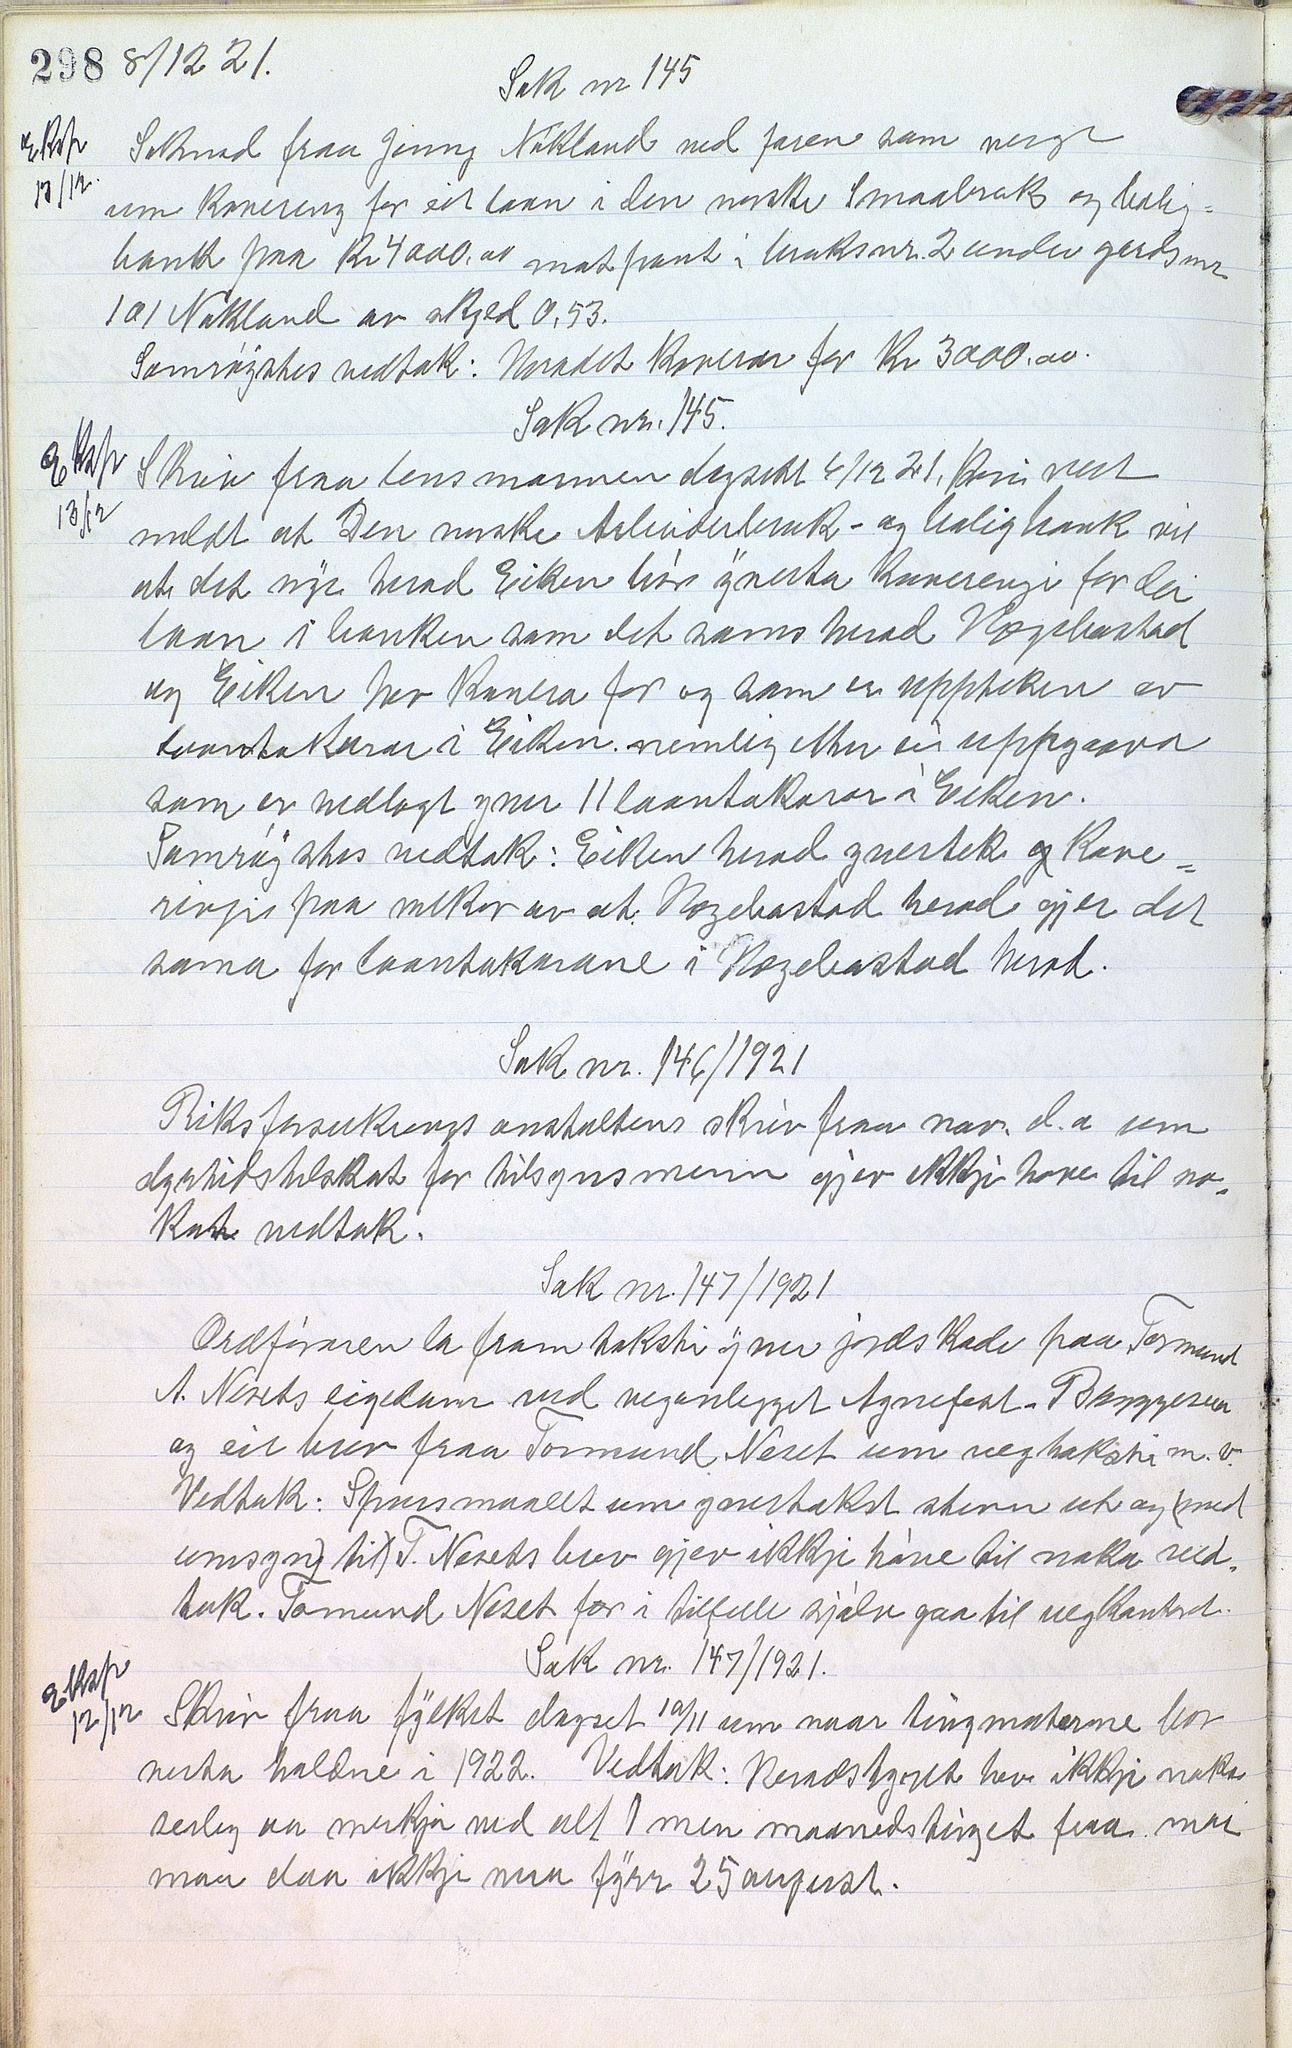 298 8/12 21.
Sak nr 145
Eksp 13/12.
Soknad fraa Jenny Nökland ved faren som verge
um kavering for eit laan i den norske Smaabruk og bolig-
bank paa Kr 4000.00 mot pant i bruksnr. 2 under gardsnr
101 Nökland av skyld 0,53.
Samröystes vedtak: Heradet kaverar for Kr 3000.00.
Sak nr. 145.
Eksp 13/12
Skriv fraa lensmannen dagsett 6/12 21, kori vert
meldt at Den norske Arbeiderbruk- og boligbank vil
at det nye herad Eiken bör yverta kaverengi for dei
laan i banken som det sams herad Hægebostad
og Eiken hev kavera for og som er uppteken av
laantakarar i Eiken. nemleg etter ei uppgaava
som er vedlagt yver 11 laantakarar i Eiken.
Samröystes vedtak: Eiken herad yvertek og kave-
ringi paa vilkor av at Hægebostad herad gjer det
sama for laantakarane i Hægebostad herad.
Sak nr. 146/1921
Riksforsikrings anstaltens skriv fraa nov. d.a um
dyrtidstilskot for tilsynsmenn gjev ikkje höve til no-
kot vedtak.
Sak nr. 147/1921
Ordföraren la fram taksti yver jordskade paa Tormund
A. Nesets eigedom ved veganlegget Agnefest-Byggeren
og eit brev fraa Tormund Neset um vegtaksti m.v.
Vedtak: Spursmaalet um yvertakst stenn ut og (med
umsyn) til) T. Nesets brev gjev ikkje höve til noka ved-
tak. Tormund Neset fær i tilfelle sjölv gaa til vegkontord.
Sak nr. 147/1921.
Eksp 12/12
Skriv fraa fylket dagset 10/11 um naar tingmoterne bor
verta haldne i 1922. Vedtak: Heradstyret hev ikkje noka
serleg aa merkja ved alt men maanedstinget fraa mai
maa daa ikkje vera fyrr 25 august.